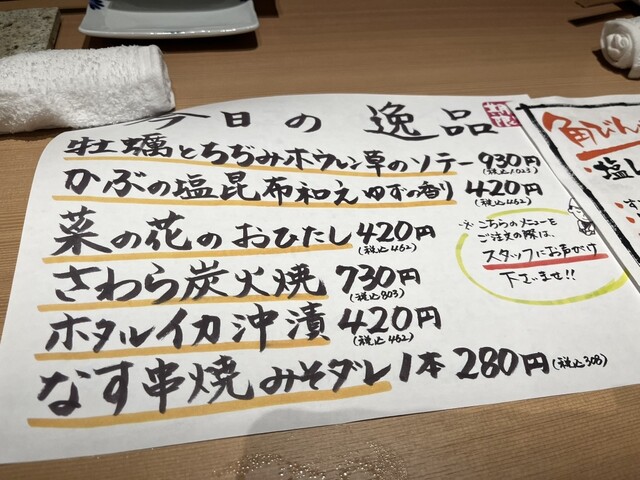 今日の逸品
牡蠣とちぢみホウレン草のソテー 930円
(税込1023)
かぶの塩昆布和え ゆずの香り 420円
(税込462)
菜の花のおひたし 420円
(税込462)
さわら炭火焼 730円
(税込803)
ホタルイカ沖漬 420円
(税込462)
なす串焼 みそダレ 1本 280円 (税込308)
※こちらのメニューを
ご注文の際は、
スタッフにお声がけ
下さいませ!!
角びん
塩し